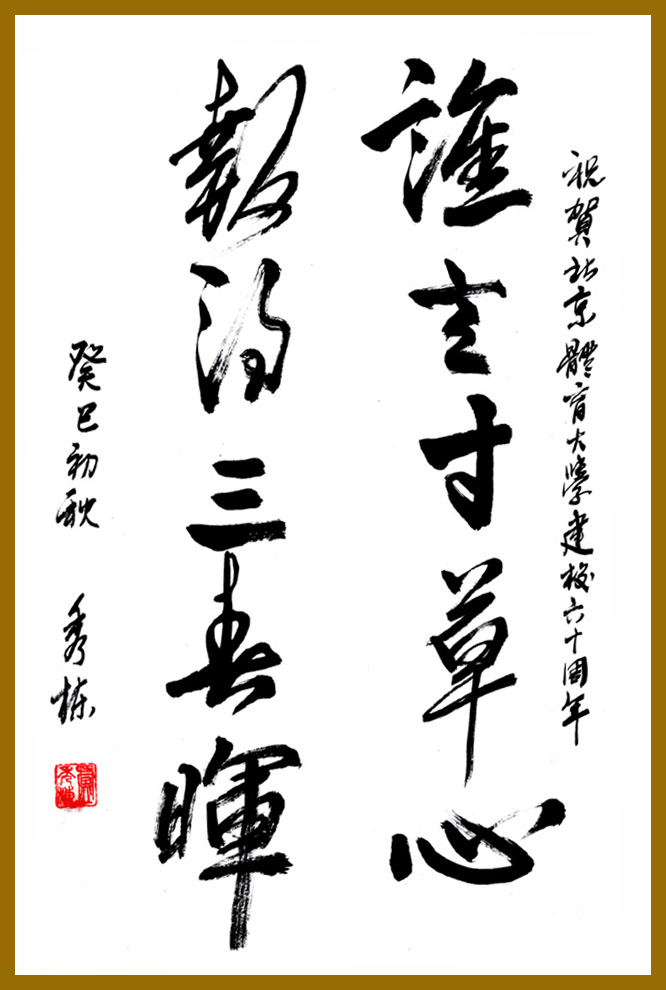 祝賀北京體育大學建校六十周年
誰言寸草心
報得三春暉
癸巳初秋
秀棟